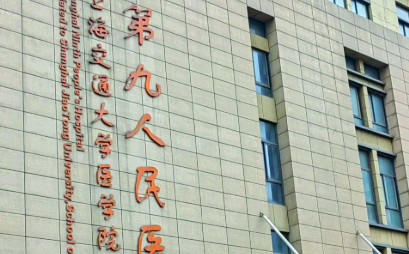 第九人民医
上海交通大学医学院
Shanghai Ninth People's Hospital
iliated to Shanghai JiaoTong University, School o